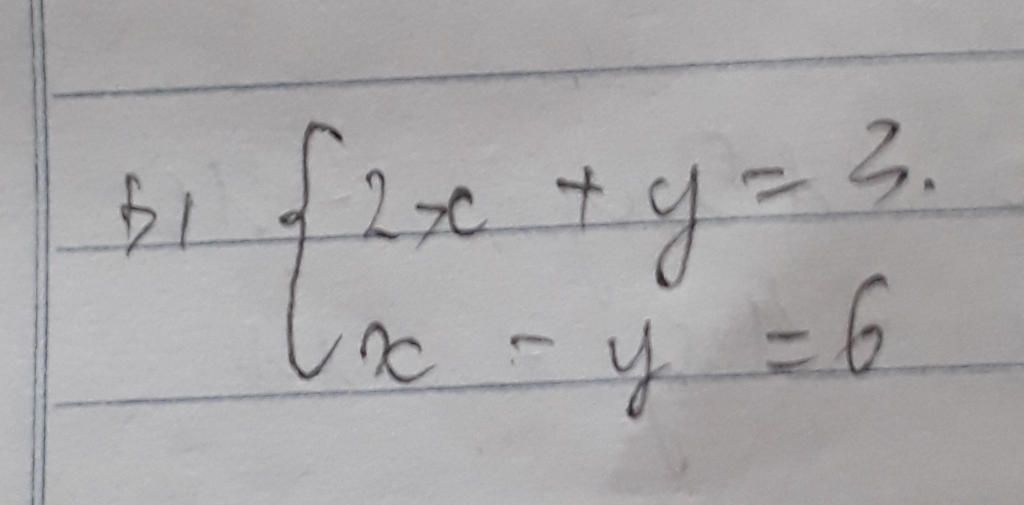 b) { 2x + y = 3.
x - y = 6